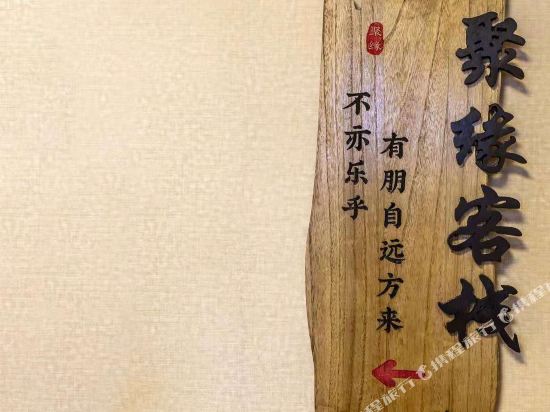 聚缘客栈
有朋自远方来
不亦乐乎
聚缘
携程旅行
携程旅行